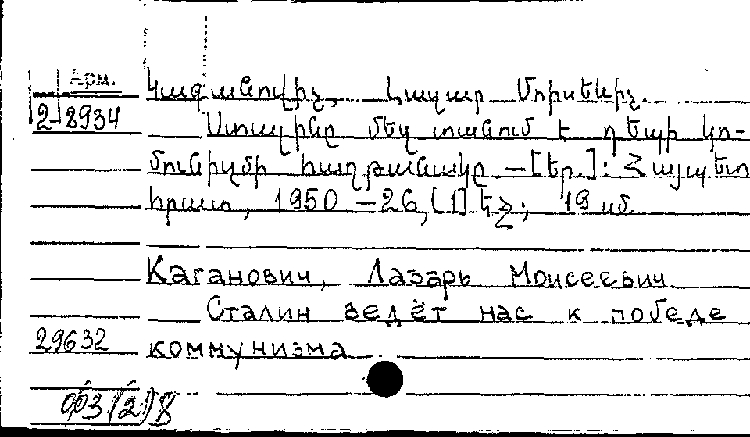 Арм.
2-8934
Կագանովիչ, Լազար Մոիսեևիչ.
Ստալինը մեզ տանում է դեպի կո-
մունիզմի հաղթանակը —[եր.]: Հայպետ
հրատ, 1950 —26,[1] էջ; 19 սմ.
Каганович, Лазарь Моисеевич
Сталин ведёт нас к победе
коммунизма
29632